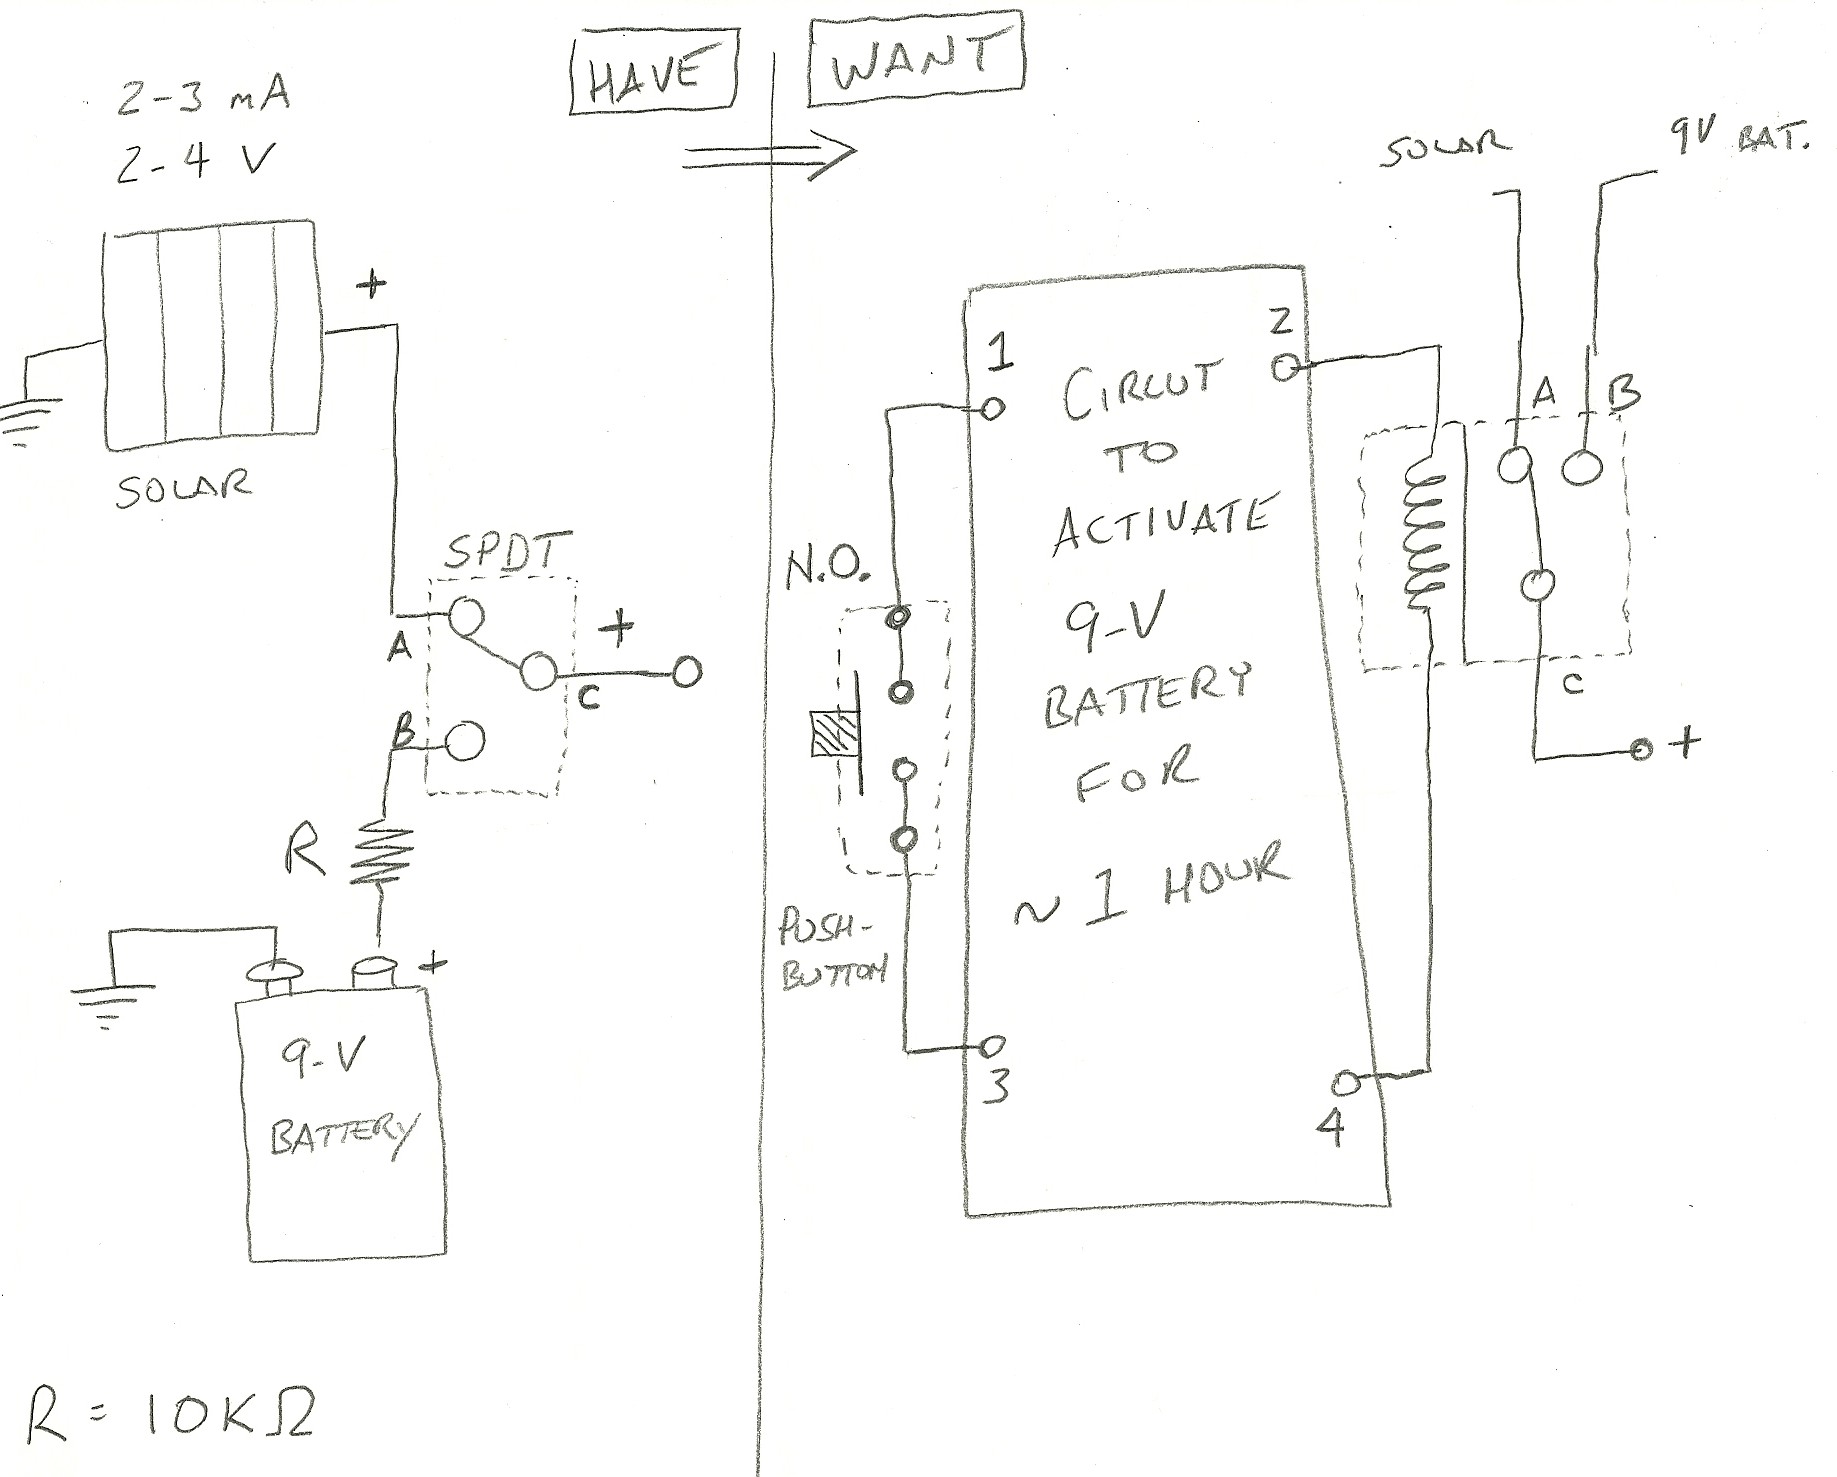 HAVE
WANT
2-3 mA
2-4 V
+
SOLAR
SPDT
A
+
C
B
R
+
9-V
BATTERY
R = 10KΩ
SOLAR
9V BAT.
1
2
CIRCUT
TO
ACTIVATE
9-V
BATTERY
FOR
~ 1 HOUR
N.O.
PUSH-
BUTTON
3
4
A
B
C
+